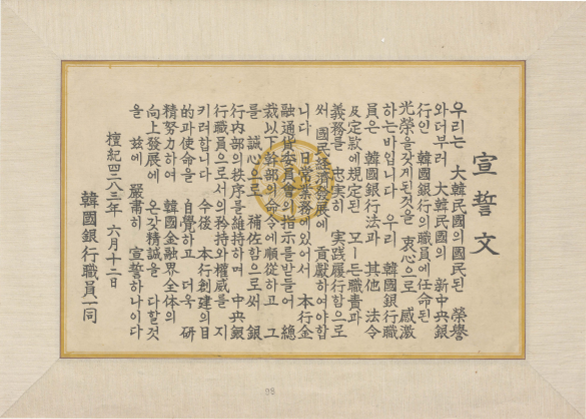 宣誓文
우리는 大韓民國의國民된 榮譽
와더부러 大韓民國의 新中央銀
行인 韓國銀行의職員에任命된
光榮을갖게된것을 衷心으로 感激
하는바입니다 우리 韓國銀行職
員은 韓國銀行法과 其他 法令
及定款에規定된 모ー든職責과
義務를 忠実히 実践履行함으로
써 國民経済發展에 貢獻하여야합
니다 日常業務에있어서 本行金
融通貨委員會의指示를받들어 總
裁以下幹部의命令에順從하고 그
를 誠心으로 補佐함으로써 銀
行內部의秩序를維持하며 中央銀
行職員으로서의矜持와權威를 지
키려합니다 今後 本行創建의目
的과使命을 自覺하고 더욱 硏
精努力하여 韓國金融界全体의
向上發展에 온갖精誠을 다할것
을 玆에 嚴肅히 宣誓하나이다
檀紀四二八三年 六月十二日
韓國銀行職員一同
98